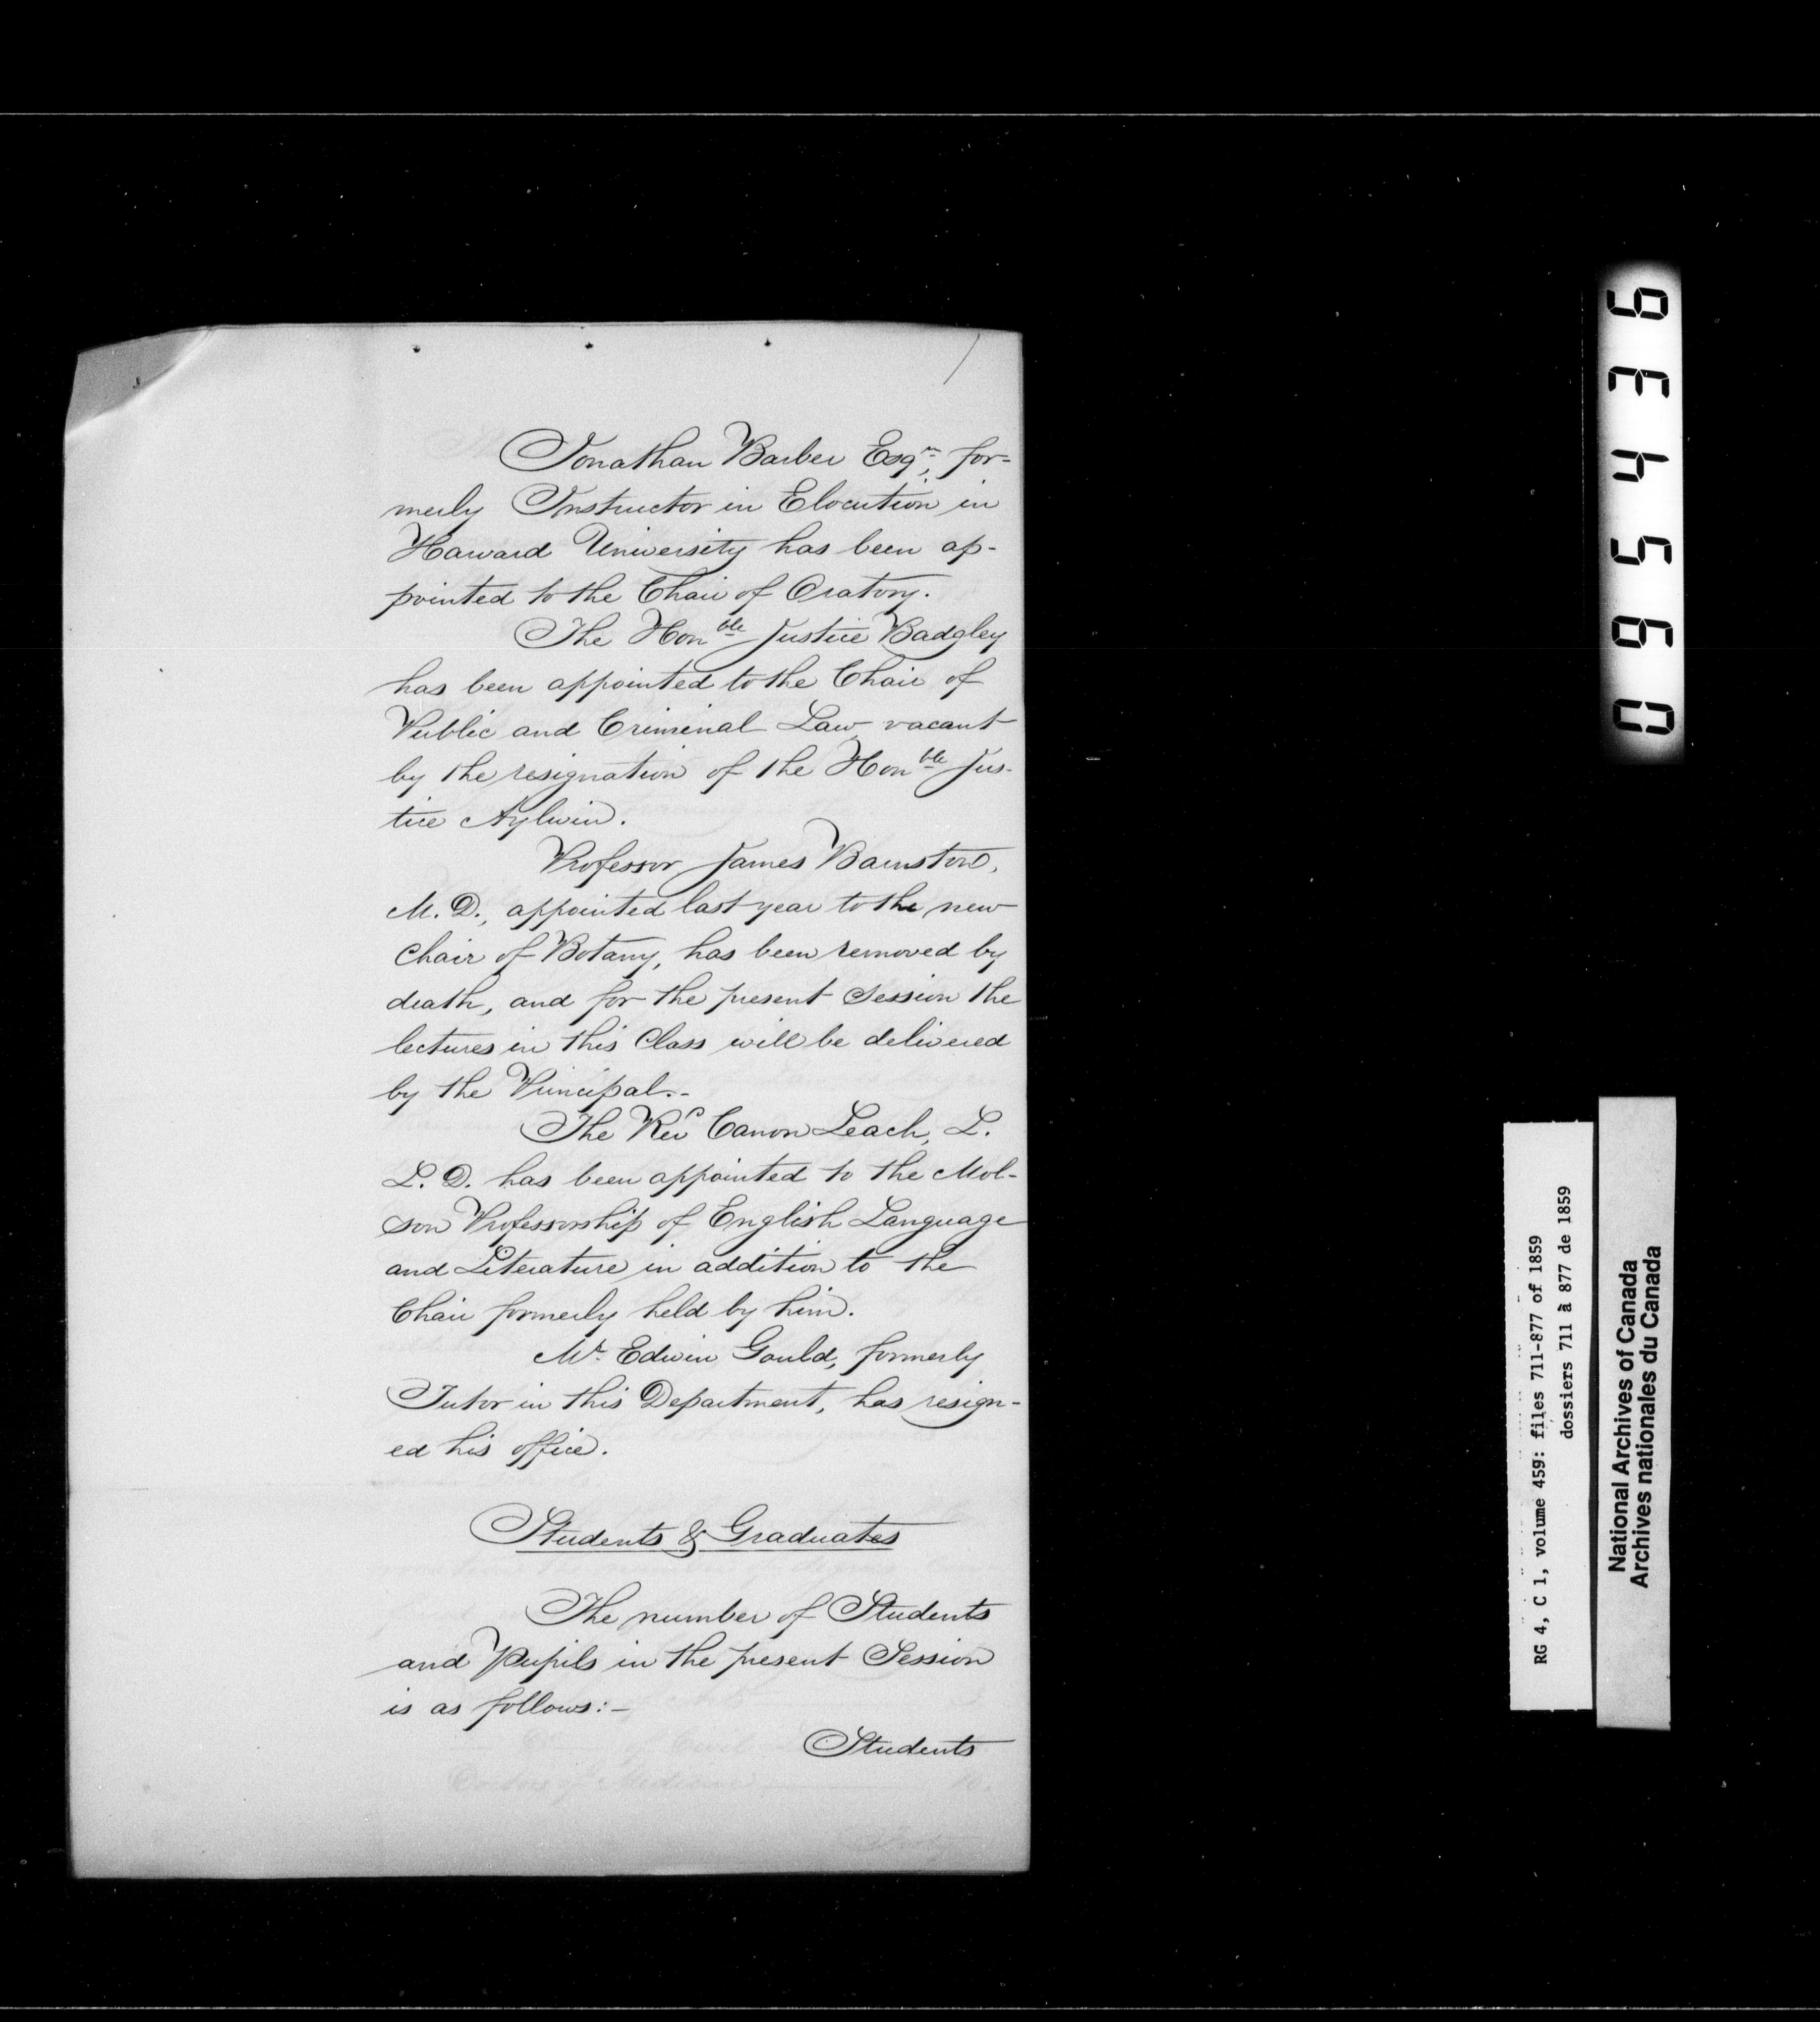 Jonathan Barber Esqre, for-
merly Instructor in Elocution in
Harvard University has been ap-
pointed to the Chair of Oratory.
The Honble Justice Badgley
has been appointed to the Chair of
Public and Criminal Law vacant
by the resignation of the Honble Jus-
tice Aylwin.
Professor James Barnston,
M.D., appointed last year to the new
Chair of Botany, has been removed by
death, and for the present Session the
lectures in this Class will be delivered
by the Principal.-
The Revd Canon Leach, L.
L.D. has been appointed to the Mol-
son Professorship of English Language
and Literature in addition to the
Chair formerly held by him.
Mr Edwin Gould, formerly
Tutor in this Department, has resign-
ed his office.
Students & Graduates
The number of Students
and Pupils in the present Session
is as follows:-
Students
064539
RG 4, C 1, volume 459: files 711-877 of 1859
dossiers 711 à 877 de 1859
National Archives of Canada
Archives nationales du Canada